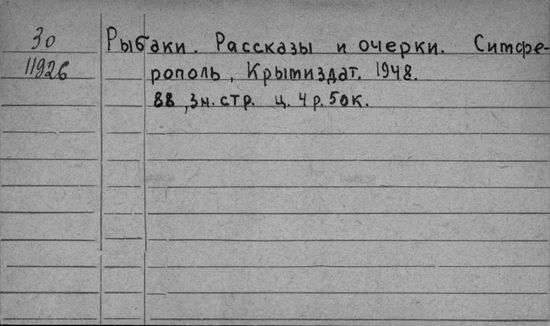 30
11926
Рыбаки. Рассказы и очерки. Симфе-
рополь, Крымиздат. 1948.
88, 3н. стр. ц. 4 р. 50к.